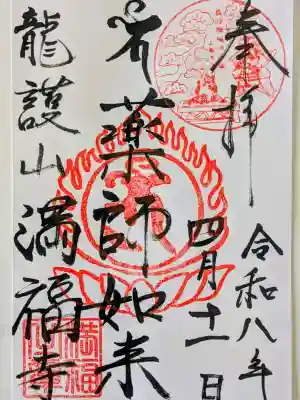 奉拝
令和八年
四月十一日
薬師如来
龍護山満福寺